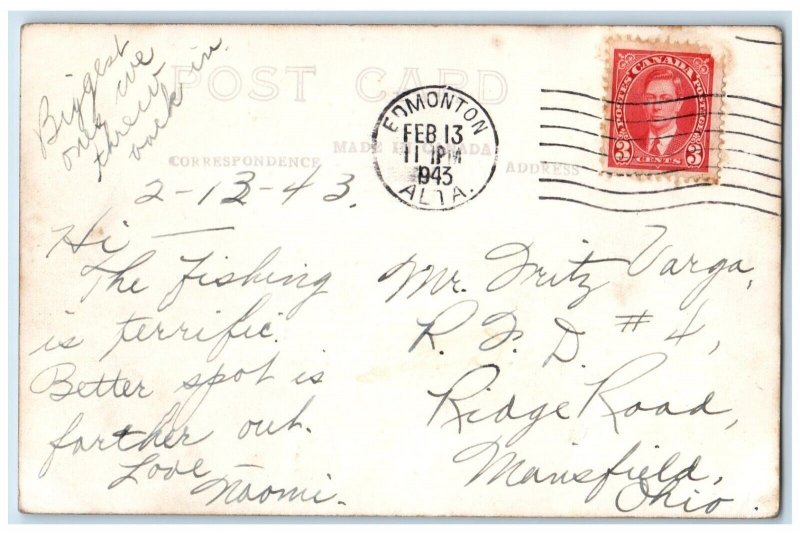 Biggest
one we
threw
back in.
POST CARD
CORRESPONDENCE
MADE IN CANADA
ADDRESS
EDMONTON
FEB 13
11 PM
1943
ALTA.
POSTES CANADA POSTAGE
3 CENTS 3
2-13-43.
Hi —
The fishing
is terrific.
Better spot is
farther out.
Love
Naomi.
Mr. Fritz Varga,
R. F. D. #4,
Ridge Road,
Mansfield,
Ohio.